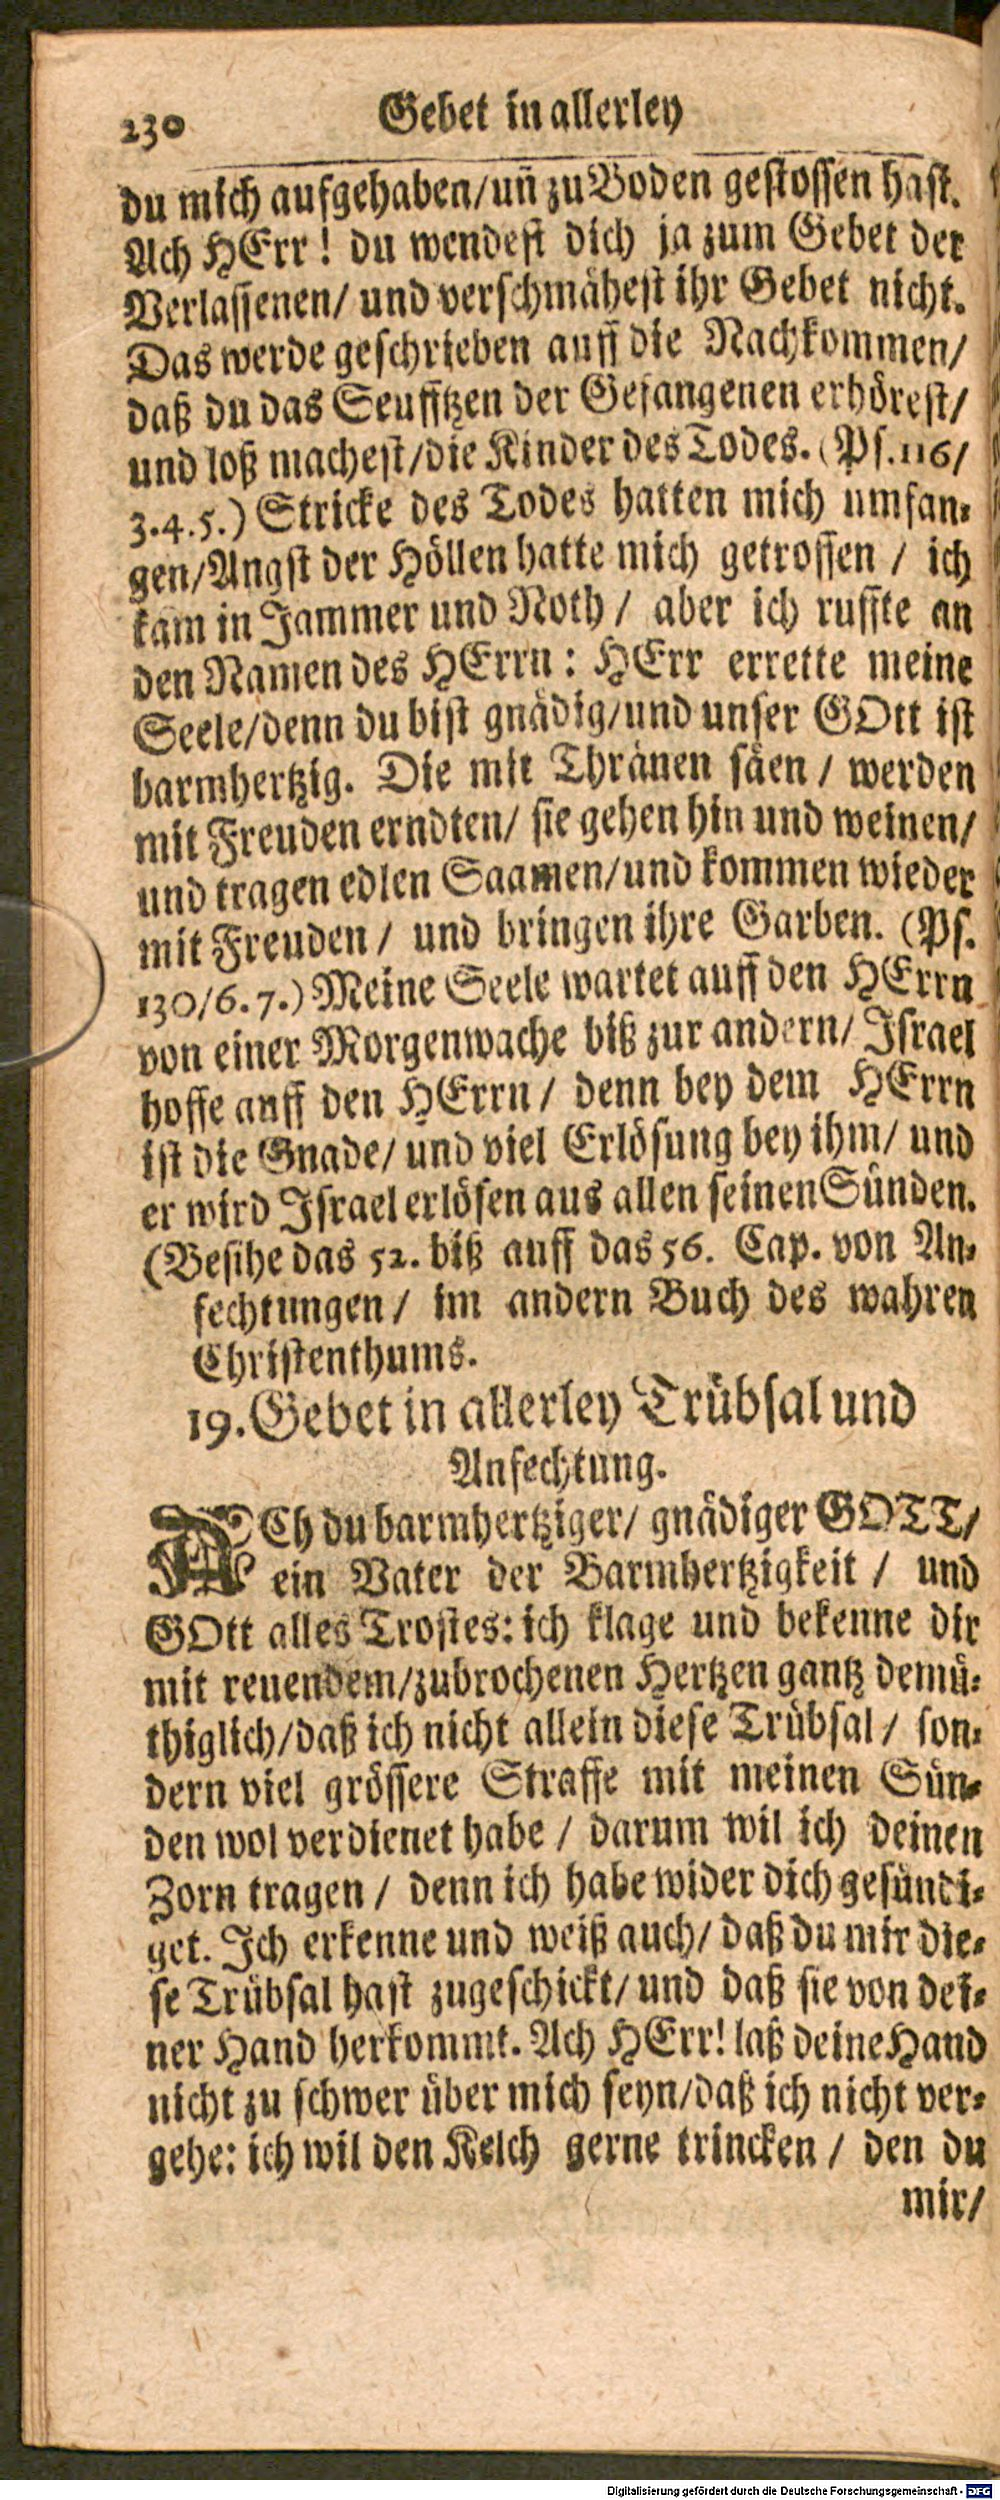 230 Gebet in allerley
du mich aufgehaben/uñ zu Boden gestossen hast.
Ach HErr! du wendest dich ja zum Gebet der
Verlassenen/ und verschmähest ihr Gebet nicht.
Das werde geschrieben auff die Nachkommen/
daß du das Seufftzen der Gefangenen erhörest/
und loß machest/die Kinder des Todes. (Ps.116/
3.4.5.) Stricke des Todes hatten mich umfan-
gen/Angst der Höllen hatte mich getroffen / ich
kam in Jammer und Noth / aber ich ruffte an
den Namen des HErrn: HErr errette meine
Seele/denn du bist gnädig/und unser GOtt ist
barmhertzig. Die mit Thränen säen / werden
mit Freuden erndten/ sie gehen hin und weinen/
und tragen edlen Saamen/und kommen wieder
mit Freuden / und bringen ihre Garben. (Ps.
130/6.7.) Meine Seele wartet auff den HErrn
von einer Morgenwache biß zur andern/ Israel
hoffe auff den HErrn / denn bey dem HErrn
ist die Gnade/ und viel Erlösung bey ihm/ und
er wird Israel erlösen aus allen seinen Sünden.
(Besihe das 52. biß auff das 56. Cap. von An-
fechtungen/ im andern Buch des wahren
Christenthums.
19. Gebet in allerley Trübsal und
Anfechtung.
ACh du barmhertziger/ gnädiger GOTT/
ein Vater der Barmhertzigkeit / und
GOtt alles Trostes: ich klage und bekenne dir
mit reuendem/zubrochenen Hertzen gantz demü-
thiglich/daß ich nicht allein diese Trübsal / son-
dern viel grössere Straffe mit meinen Sün-
den wol verdienet habe / darum wil ich deinen
Zorn tragen / denn ich habe wider dich gesündi-
get. Ich erkenne und weiß auch/ daß du mir die-
se Trübsal hast zugeschickt/ und daß sie von dei-
ner Hand herkommt. Ach HErr! laß deine Hand
nicht zu schwer über mich seyn/daß ich nicht ver-
gehe: ich wil den Kelch gerne trincken / den du
mir/
Digitalisierung gefördert durch die Deutsche Forschungsgemeinschaft - DFG